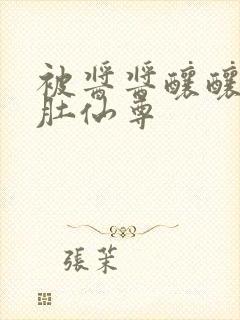 被醬醬釀釀
肚仙尊
張茉